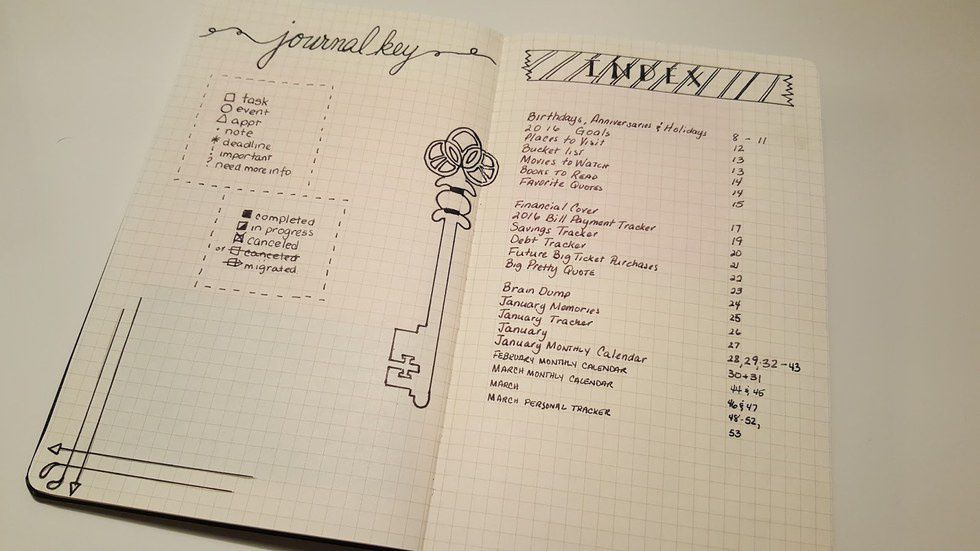 journal key
□ task
○ event
△ appt
· note
* deadline
! important
? need more info
■ completed
in progress
canceled
or canceled
migrated
INDEX
Birthdays, Anniversaries & Holidays
2016 Goals
Places to Visit
Bucket list
Movies to Watch
Books to Read
Favorite Quotes
Financial Cover
2016 Bill Payment Tracker
Savings Tracker
Debt Tracker
Future Big Ticket Purchases
Big Pretty Quote
Brain Dump
January Memories
January Tracker
January
January Monthly Calendar
FEBRUARY MONTHLY CALENDAR
MARCH MONTHLY CALENDAR
MARCH
MARCH PERSONAL TRACKER
8 - 11
12
13
13
14
14
15
17
19
20
21
22
23
24
25
26
27
28, 29, 32-43
30+31
44 & 45
46 & 47
48-52,
53